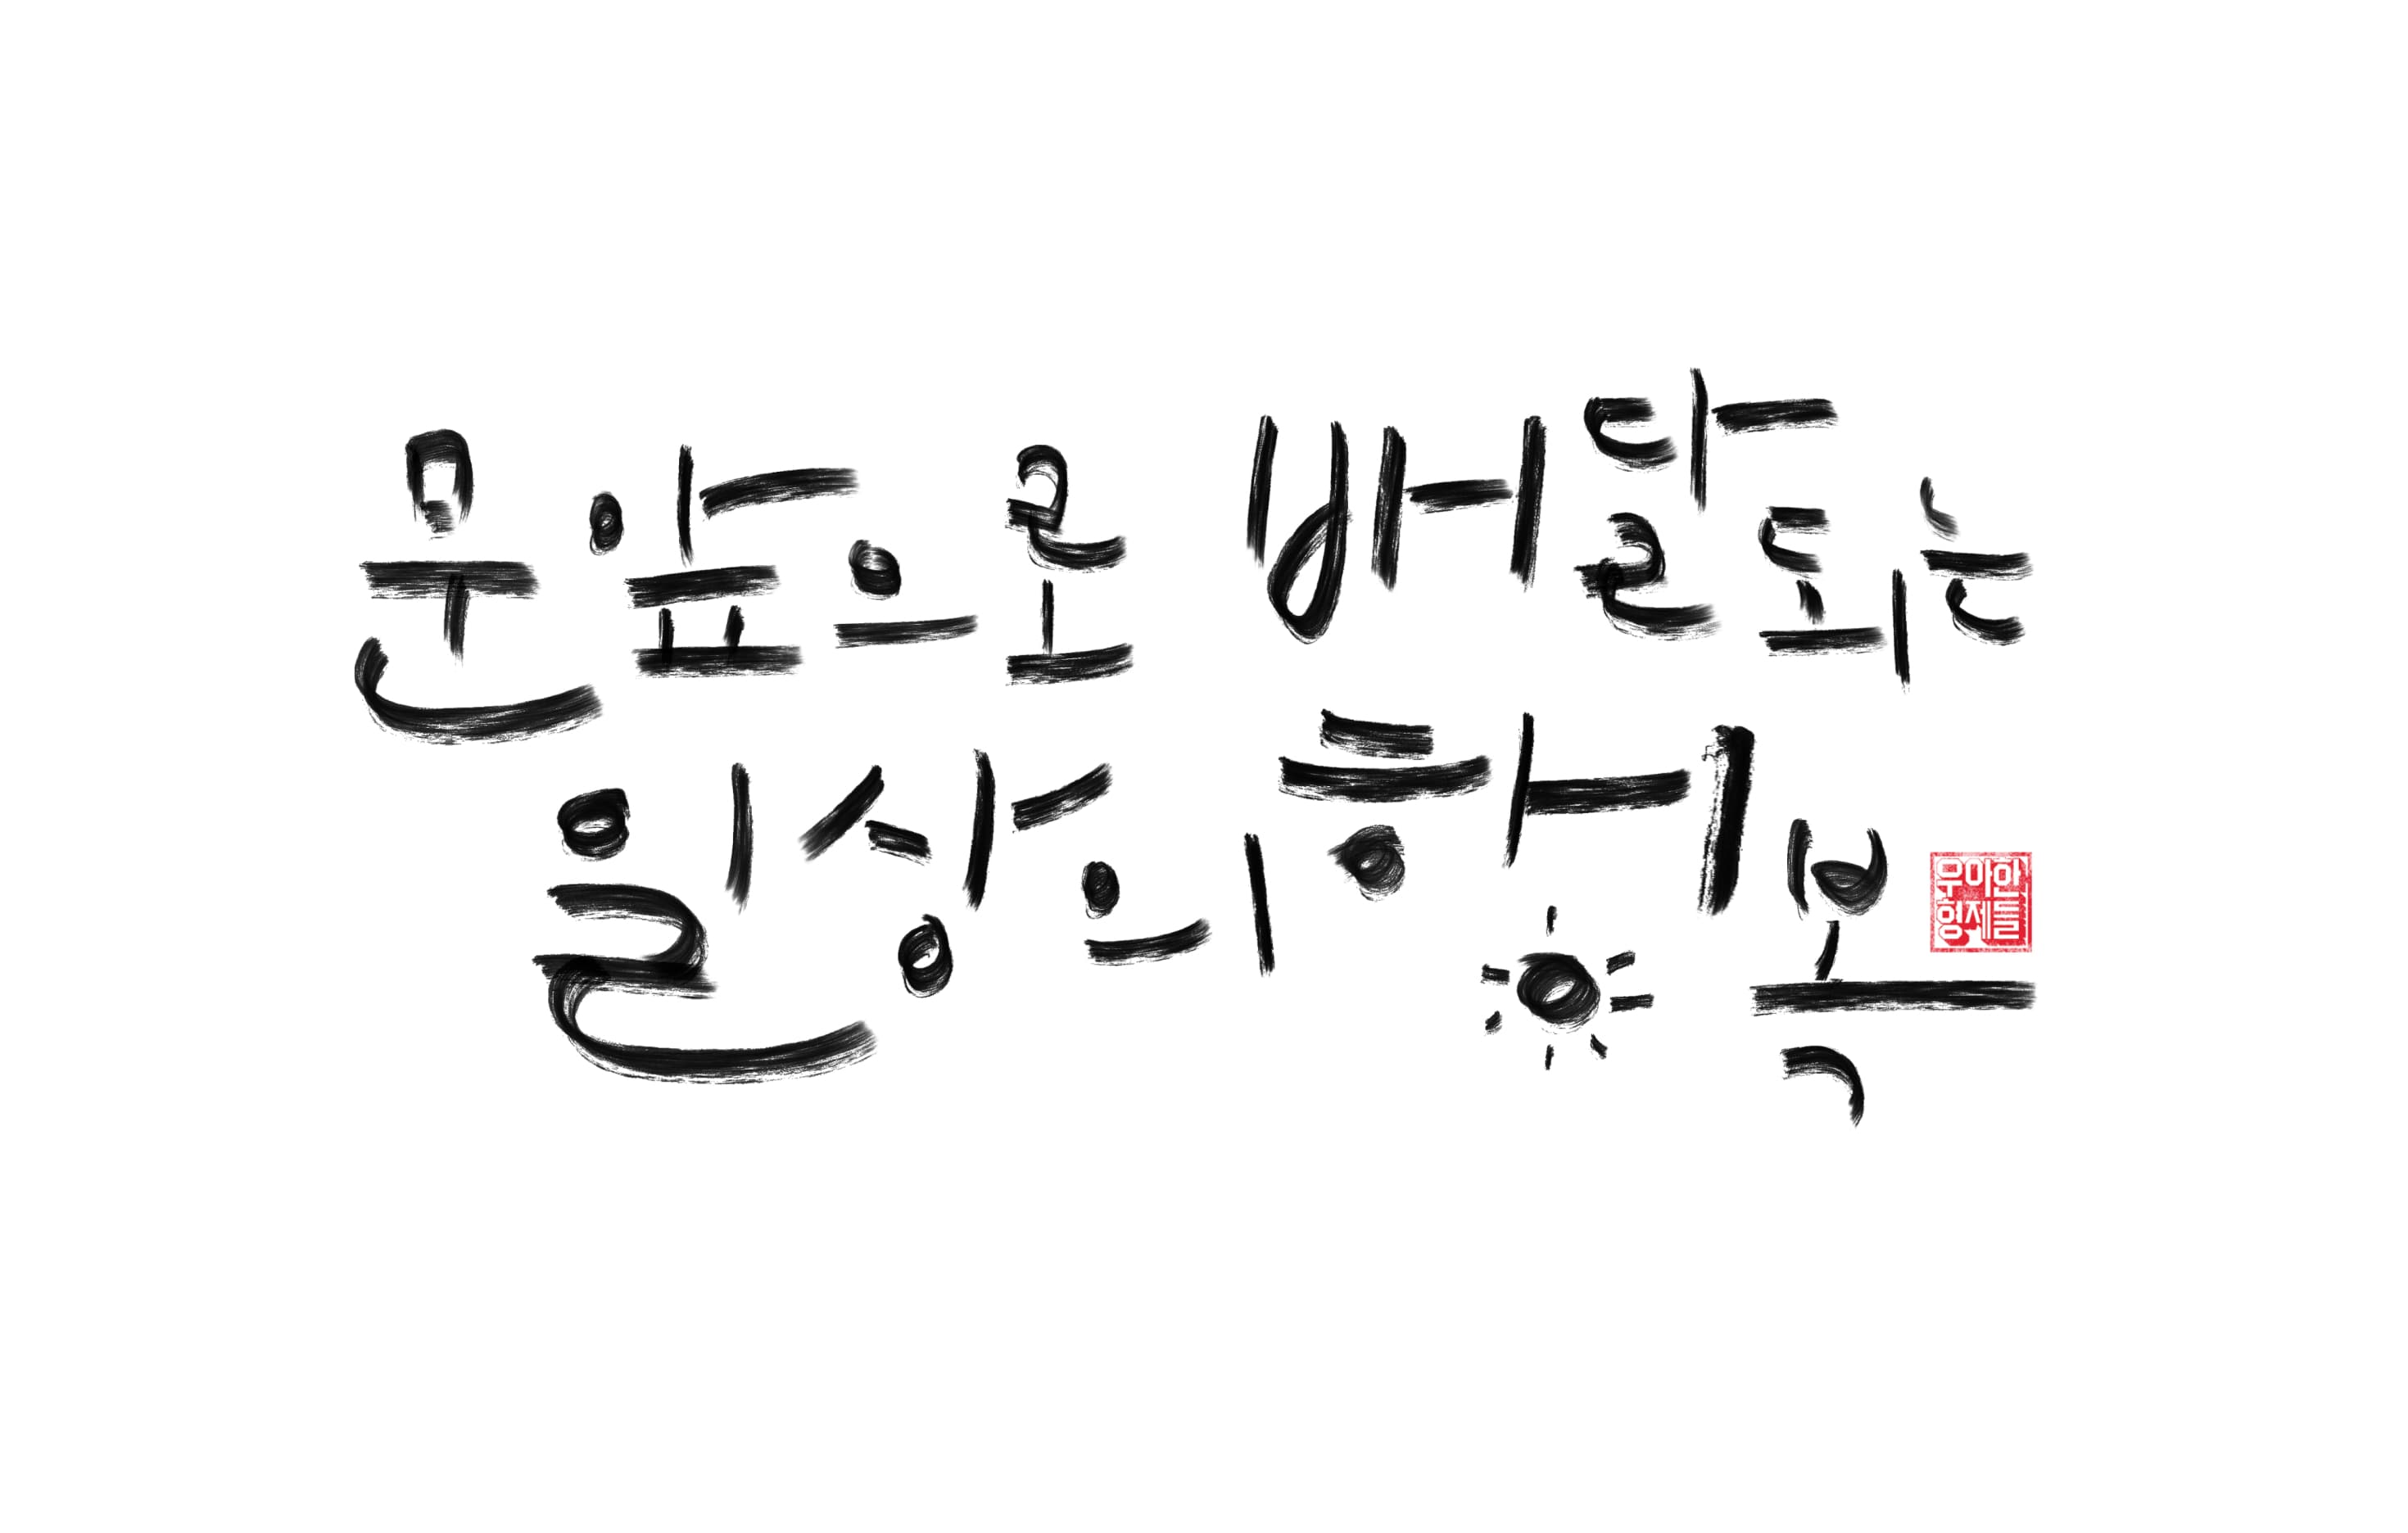 문 앞으로 배달되는
일상의 행복
우아한
형제들